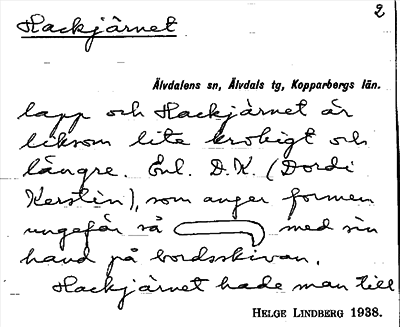 Hackjärnet
2
Älvdalens sn, Älvdals tg, Kopparbergs län.
lapp och Hackjärnet är
liksom lite krokigt och
längre. Enl. D.K. (Dordi
Kerstin), som anger formen
ungefär så med sin
hand på bordsskivan.
Hackjärnet hade man till
HELGE LINDBERG 1938.